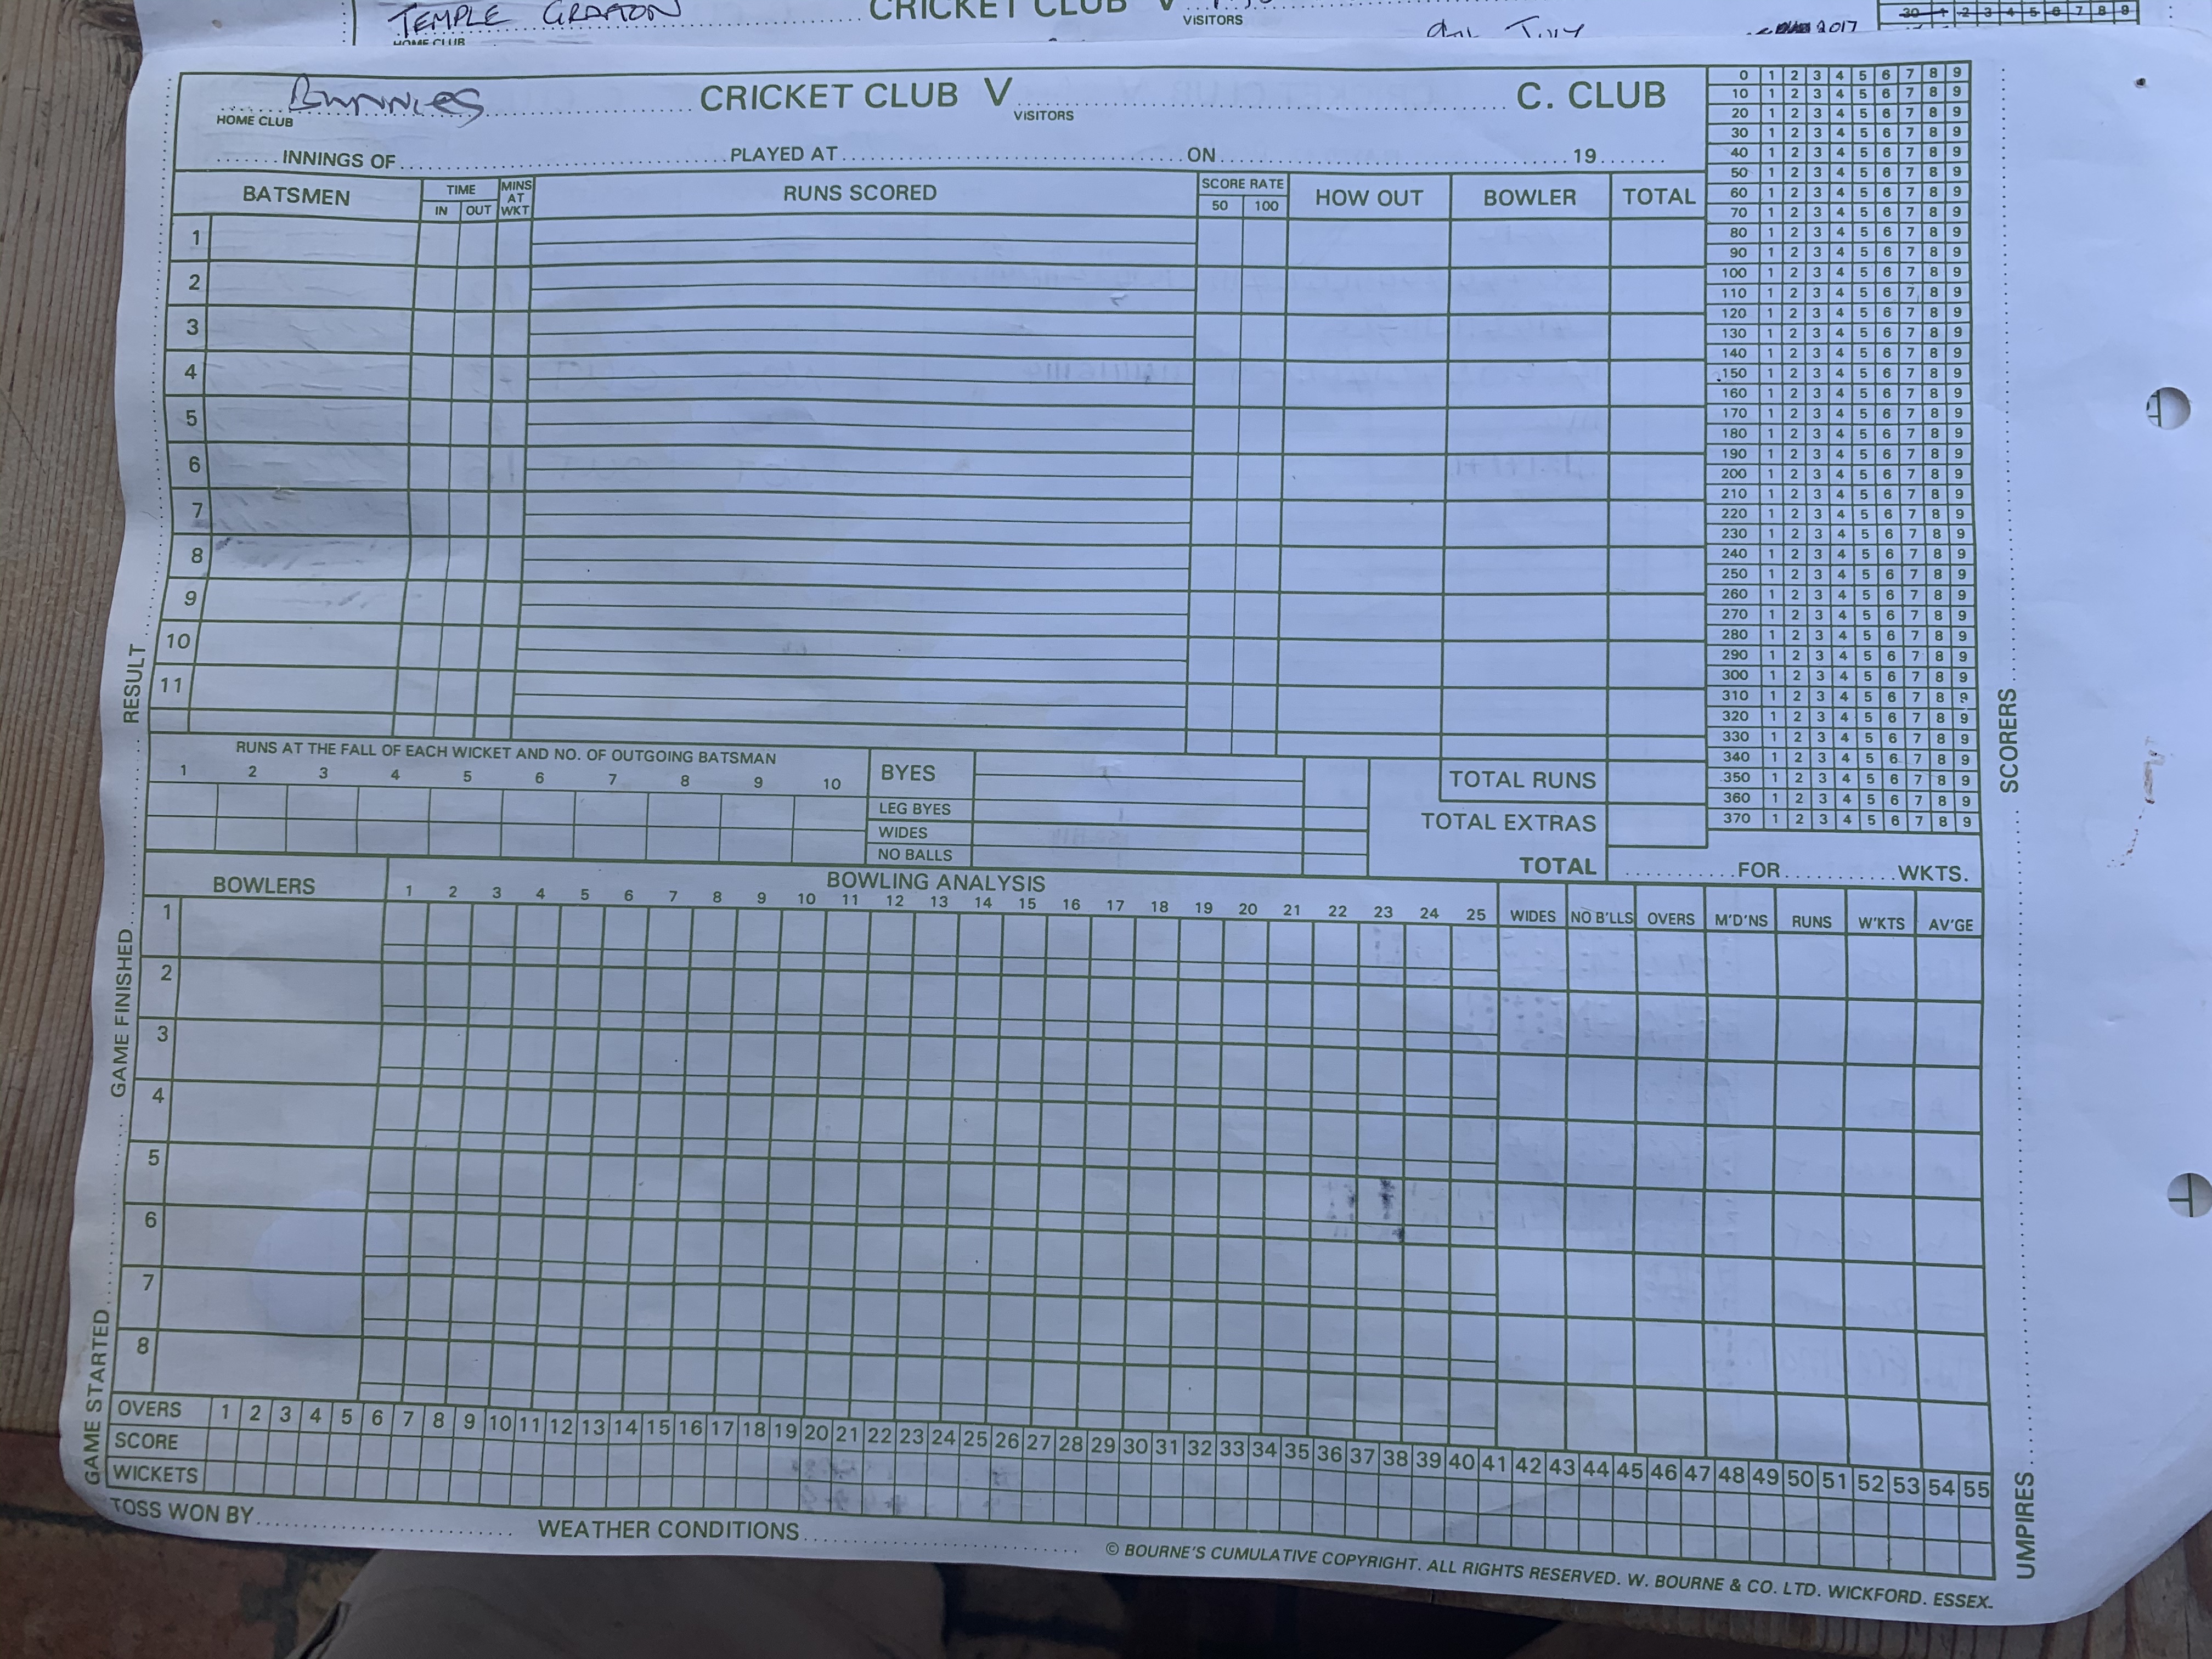 TEMPLE GRAFTON CRICKET CLUB V
HOME CLUB VISITORS
2017
30 1 2 3 4 5 6 7 8 9
Bunnies CRICKET CLUB V C. CLUB
HOME CLUB VISITORS
INNINGS OF PLAYED AT ON 19
BATSMEN TIME MINS AT WKT RUNS SCORED SCORE RATE HOW OUT BOWLER TOTAL
IN OUT 50 100
1
2
3
4
5
6
7
8
9
10
11
0 1 2 3 4 5 6 7 8 9
10 1 2 3 4 5 6 7 8 9
20 1 2 3 4 5 6 7 8 9
30 1 2 3 4 5 6 7 8 9
40 1 2 3 4 5 6 7 8 9
50 1 2 3 4 5 6 7 8 9
60 1 2 3 4 5 6 7 8 9
70 1 2 3 4 5 6 7 8 9
80 1 2 3 4 5 6 7 8 9
90 1 2 3 4 5 6 7 8 9
100 1 2 3 4 5 6 7 8 9
110 1 2 3 4 5 6 7 8 9
120 1 2 3 4 5 6 7 8 9
130 1 2 3 4 5 6 7 8 9
140 1 2 3 4 5 6 7 8 9
150 1 2 3 4 5 6 7 8 9
160 1 2 3 4 5 6 7 8 9
170 1 2 3 4 5 6 7 8 9
180 1 2 3 4 5 6 7 8 9
190 1 2 3 4 5 6 7 8 9
200 1 2 3 4 5 6 7 8 9
210 1 2 3 4 5 6 7 8 9
220 1 2 3 4 5 6 7 8 9
230 1 2 3 4 5 6 7 8 9
240 1 2 3 4 5 6 7 8 9
250 1 2 3 4 5 6 7 8 9
260 1 2 3 4 5 6 7 8 9
270 1 2 3 4 5 6 7 8 9
280 1 2 3 4 5 6 7 8 9
290 1 2 3 4 5 6 7 8 9
300 1 2 3 4 5 6 7 8 9
310 1 2 3 4 5 6 7 8 9
320 1 2 3 4 5 6 7 8 9
330 1 2 3 4 5 6 7 8 9
340 1 2 3 4 5 6 7 8 9
350 1 2 3 4 5 6 7 8 9
360 1 2 3 4 5 6 7 8 9
370 1 2 3 4 5 6 7 8 9
RUNS AT THE FALL OF EACH WICKET AND NO. OF OUTGOING BATSMAN
1 2 3 4 5 6 7 8 9 10
BYES
LEG BYES
WIDES
NO BALLS
TOTAL RUNS
TOTAL EXTRAS
TOTAL FOR WKTS.
BOWLERS BOWLING ANALYSIS
1 2 3 4 5 6 7 8 9 10 11 12 13 14 15 16 17 18 19 20 21 22 23 24 25 WIDES NO B'LLS OVERS M'D'NS RUNS W'KTS AV'GE
1
2
3
4
5
6
7
8
OVERS 1 2 3 4 5 6 7 8 9 10 11 12 13 14 15 16 17 18 19 20 21 22 23 24 25 26 27 28 29 30 31 32 33 34 35 36 37 38 39 40 41 42 43 44 45 46 47 48 49 50 51 52 53 54 55
SCORE
WICKETS
TOSS WON BY WEATHER CONDITIONS
© BOURNE'S CUMULATIVE COPYRIGHT. ALL RIGHTS RESERVED. W. BOURNE & CO. LTD. WICKFORD. ESSEX.
GAME STARTED GAME FINISHED RESULT
UMPIRES SCORERS